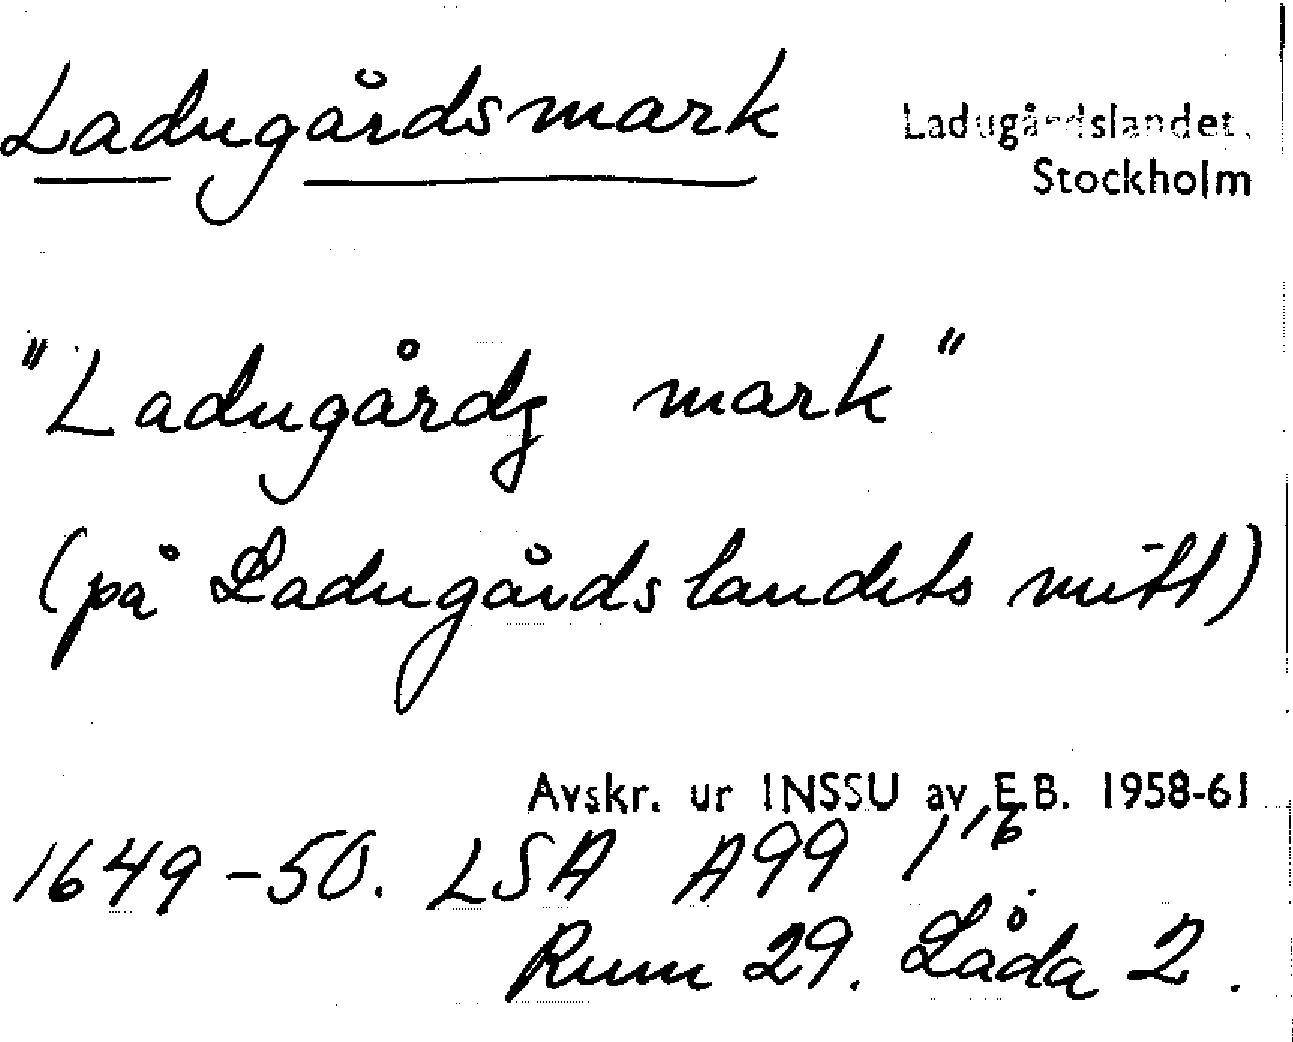 Ladugårdsmark
Ladugårdslandet,
Stockholm
"Ladugårdz mark"
(på Ladugårdslandets mitt)
Avskr. ur INSSU av E.B. 1958-61
1649-50. LSA A99 1'16
Rum 29. Låda 2.